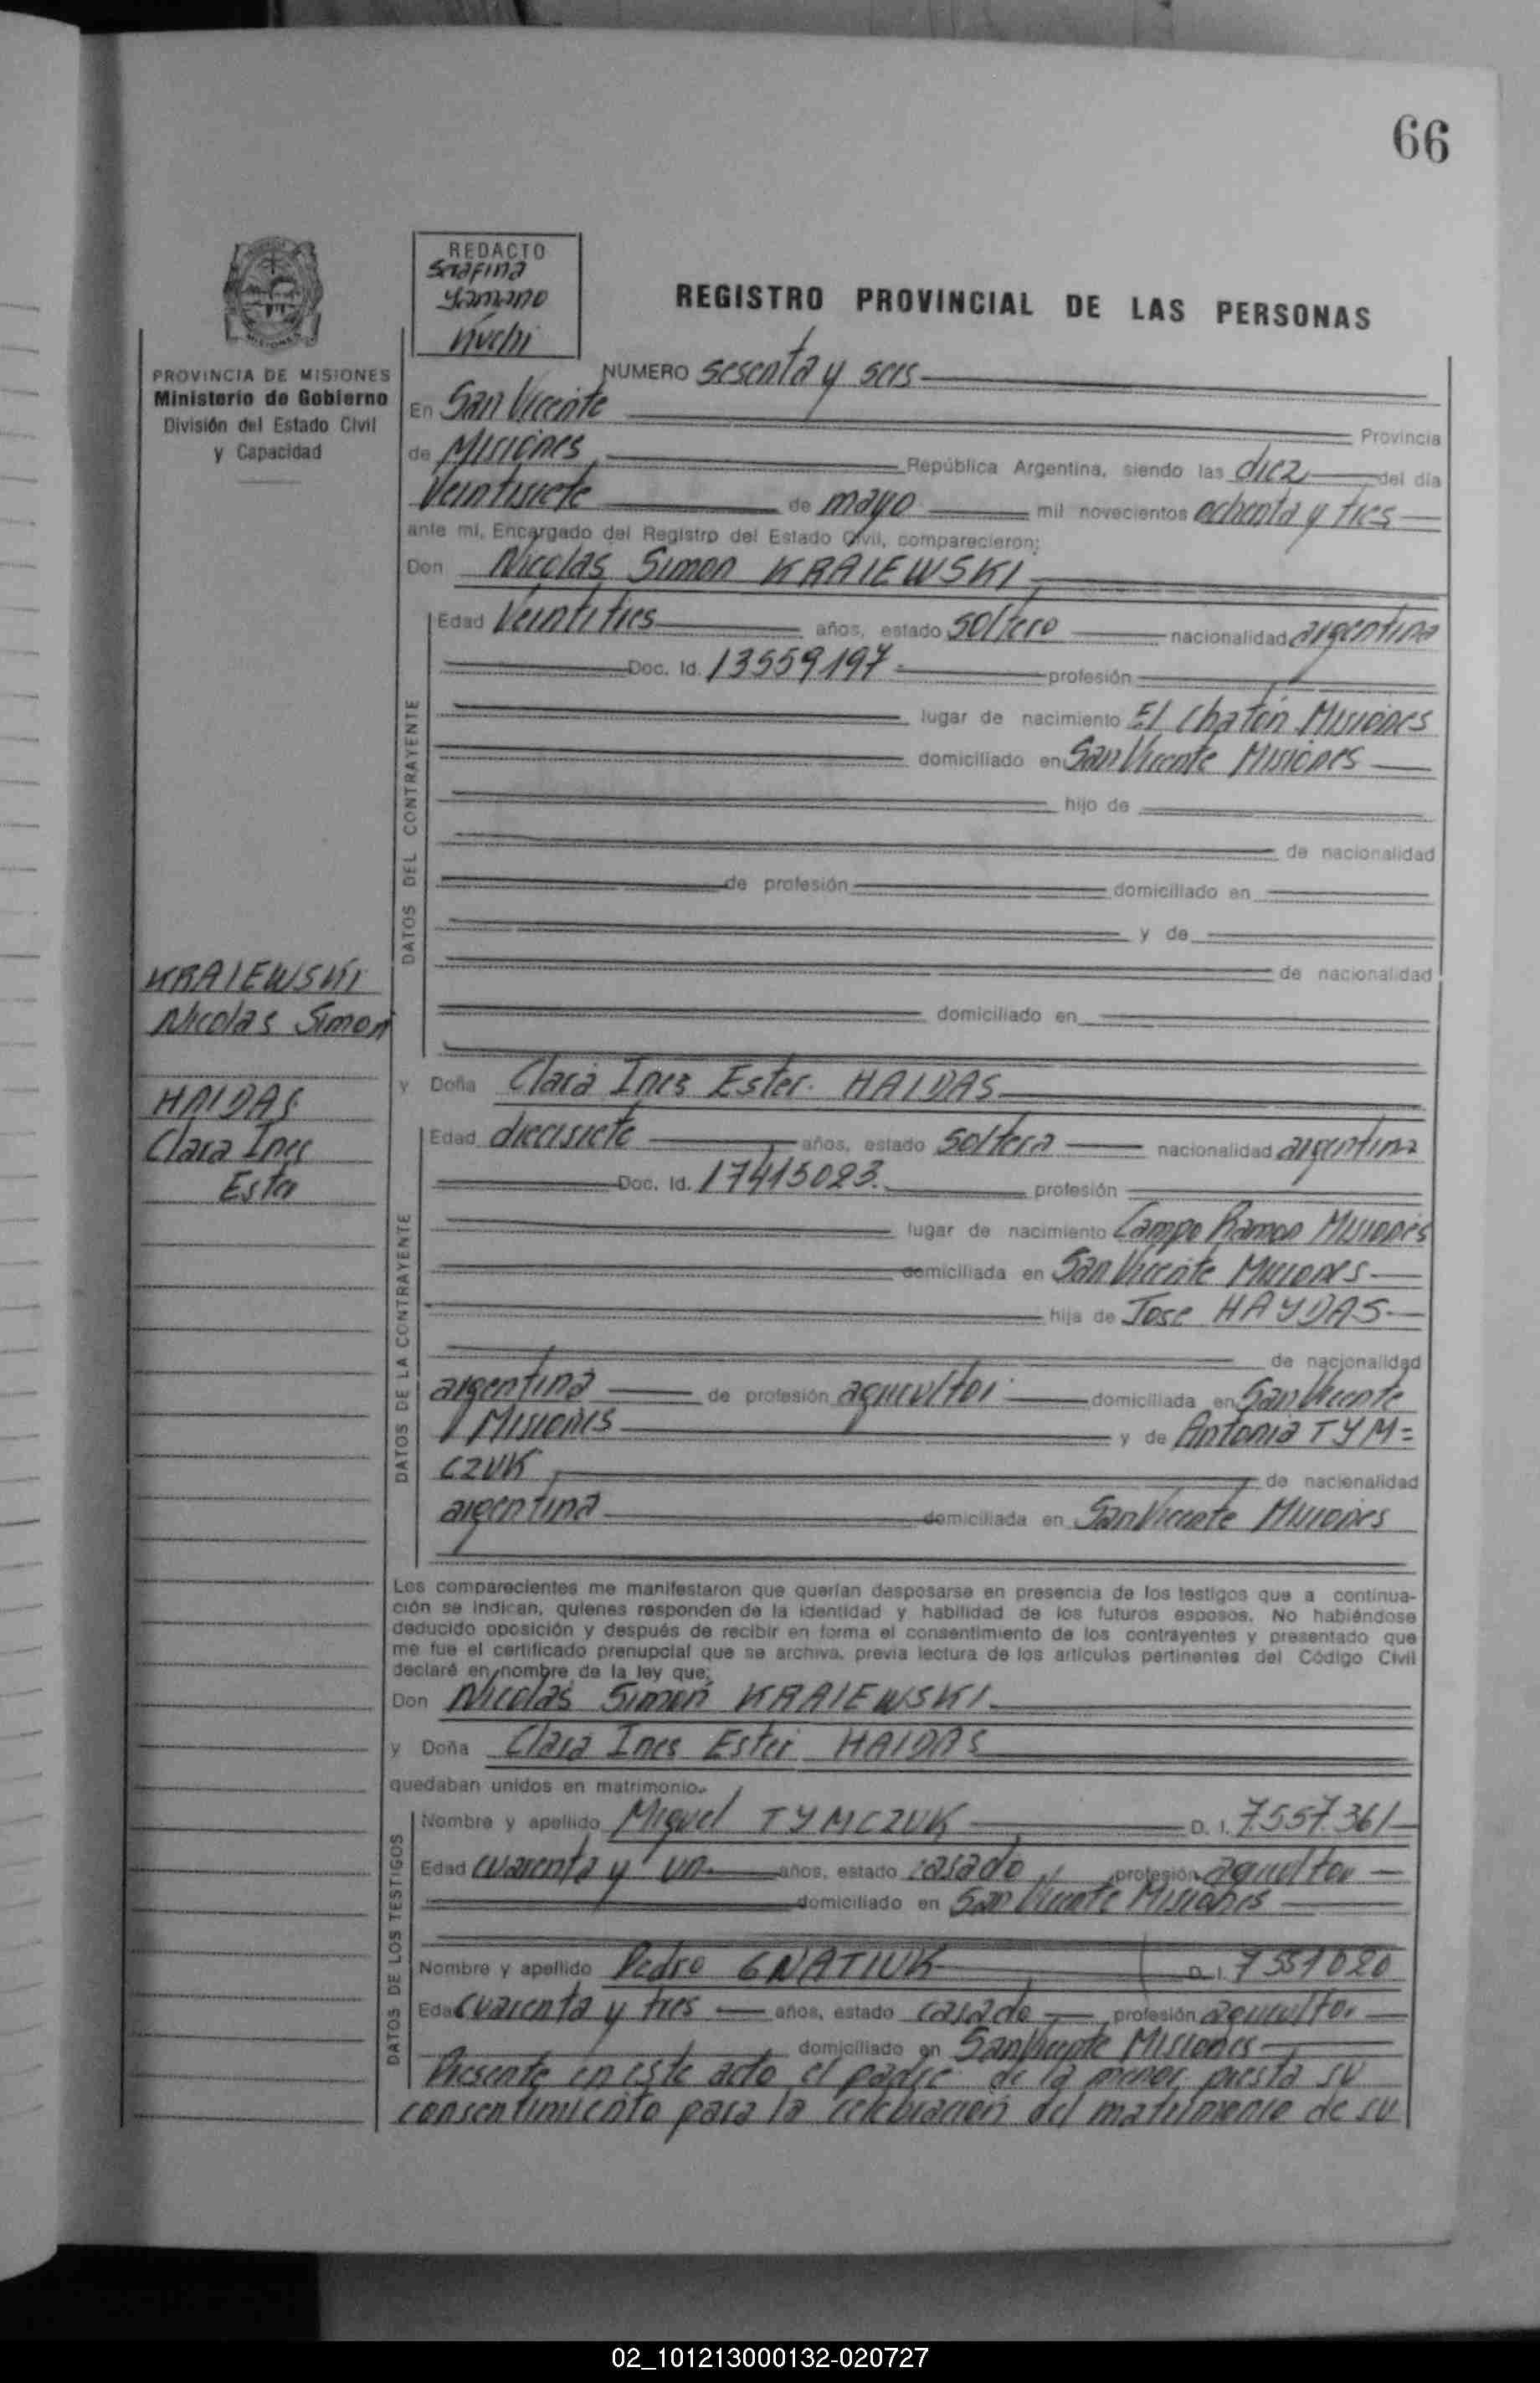 66
REDACTO
Serafina
Yamano
Kuchi
REGISTRO PROVINCIAL DE LAS PERSONAS
PROVINCIA DE MISIONES
Ministerio de Gobierno
División del Estado Civil
y Capacidad
NUMERO sesenta y seis
En San Vicente Provincia
de Misiones República Argentina, siendo las diez del día
Veintisiete de mayo mil novecientos ochenta y tres
ante mi, Encargado del Registro del Estado Civil, comparecieron:
Don Nicolas Simon KRAIEWSKI
DATOS DEL CONTRAYENTE
Edad Veintitres años, estado soltero nacionalidad argentina
Doc. Id. 13559197 profesión
lugar de nacimiento El Chaton Misiones
domiciliado en San Vicente Misiones
hijo de
de nacionalidad
de profesión domiciliado en
y de
de nacionalidad
domiciliado en
KRAIEWSKI
Nicolas Simon
HAIDAS
Clara Ines
Ester
y Doña Clara Ines Ester HAIDAS
DATOS DE LA CONTRAYENTE
Edad diecisiete años, estado soltera nacionalidad argentina
Doc. Id. 17415023. profesión
lugar de nacimiento Campo Ramon Misiones
domiciliada en San Vicente Misiones
hija de Jose HAYDAS
de nacionalidad
argentina de profesión agricultor domiciliada en San Vicente
Misiones y de Antonia TYM=
CZUK de nacionalidad
argentina domiciliada en San Vicente Misiones
Los comparecientes me manifestaron que querían desposarse en presencia de los testigos que a continua-
ción se indican, quienes responden de la identidad y habilidad de los futuros esposos. No habiéndose
deducido oposición y después de recibir en forma el consentimiento de los contrayentes y presentado que
me fue el certificado prenupcial que se archiva, previa lectura de los artículos pertinentes del Código Civil
declaré en nombre de la ley que:
Don Nicolas Simon KRAIEWSKI
y Doña Clara Ines Ester HAIDAS
quedaban unidos en matrimonio.
DATOS DE LOS TESTIGOS
Nombre y apellido Miguel TYMCZUK D. I. 7.557.361
Edad cuarenta y un años, estado casado profesión agricultor
domiciliado en San Vicente Misiones
Nombre y apellido Pedro GNATIUK D. I. 7551020
Edad cuarenta y tres años, estado casado profesión agricultor
domiciliado en San Vicente Misiones
Presente en este acto el padre de la menor presta su
consentimiento para la celebracion del matrimonio de su
02_101213000132-020727